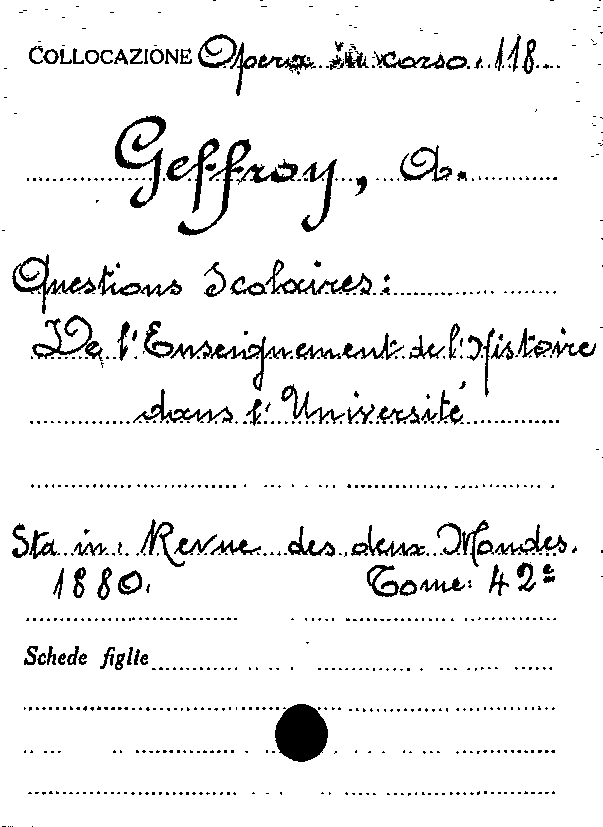 COLLOCAZIONE Opera in corso. 118
Geffroy, A.
Questions Scolaires:
De l'Enseignement de l'Histoire
dans l'Université
Sta in: Revue des deux Mondes.
1880. Tome: 42e
Schede figlie